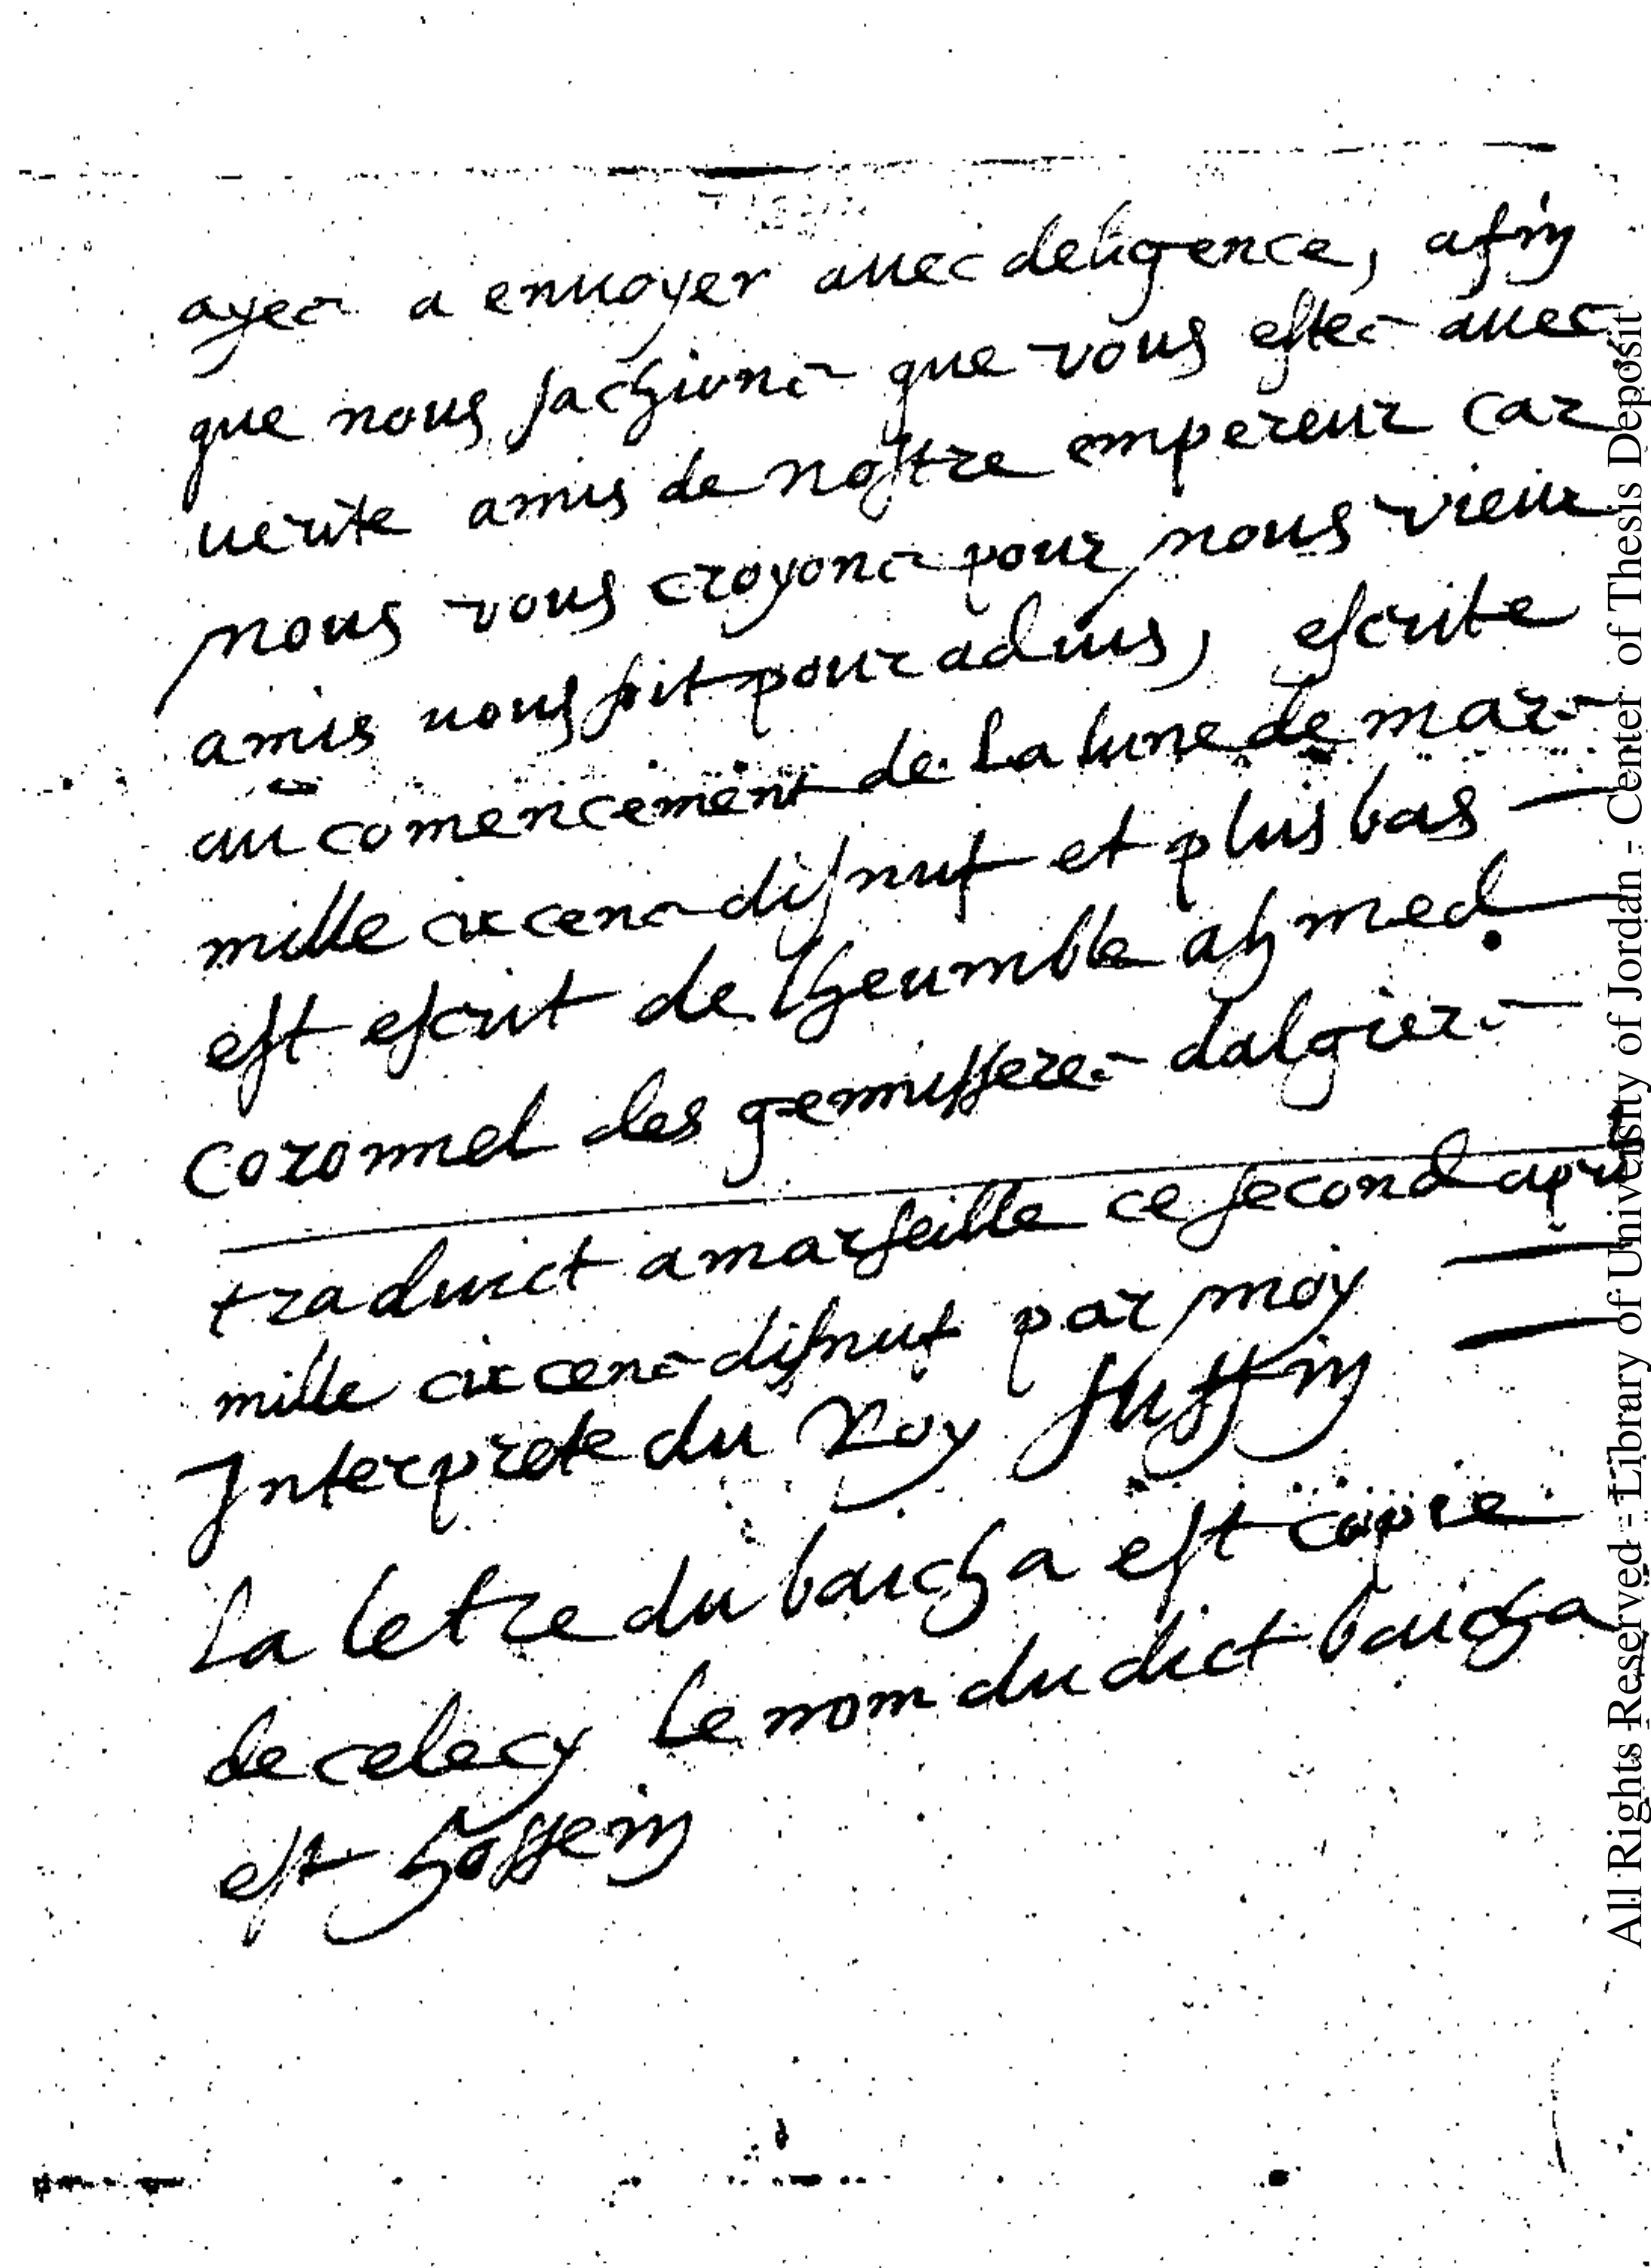 ayez a enuoyer auec deligence, afin
que nous sachions que vous estes auec
uerite amis de nostre empereur car
nous vous croyons pour nous vieux
amis uous soit pour aduis, escrite
au comencement de la lune de mars
mille cix cens disnuf et plus bas
est escrit de lheumble ahmed
coronnel des gennisseres dalgiers
traduict a marseille ce second apvril
mille cix cens disnuf par moy
Interprete du Roy suffin
La letre du baicha est copie
de celecy le nom du dict baicha
est hossein
All Rights Reserved - Library of University of Jordan - Center of Thesis Deposit